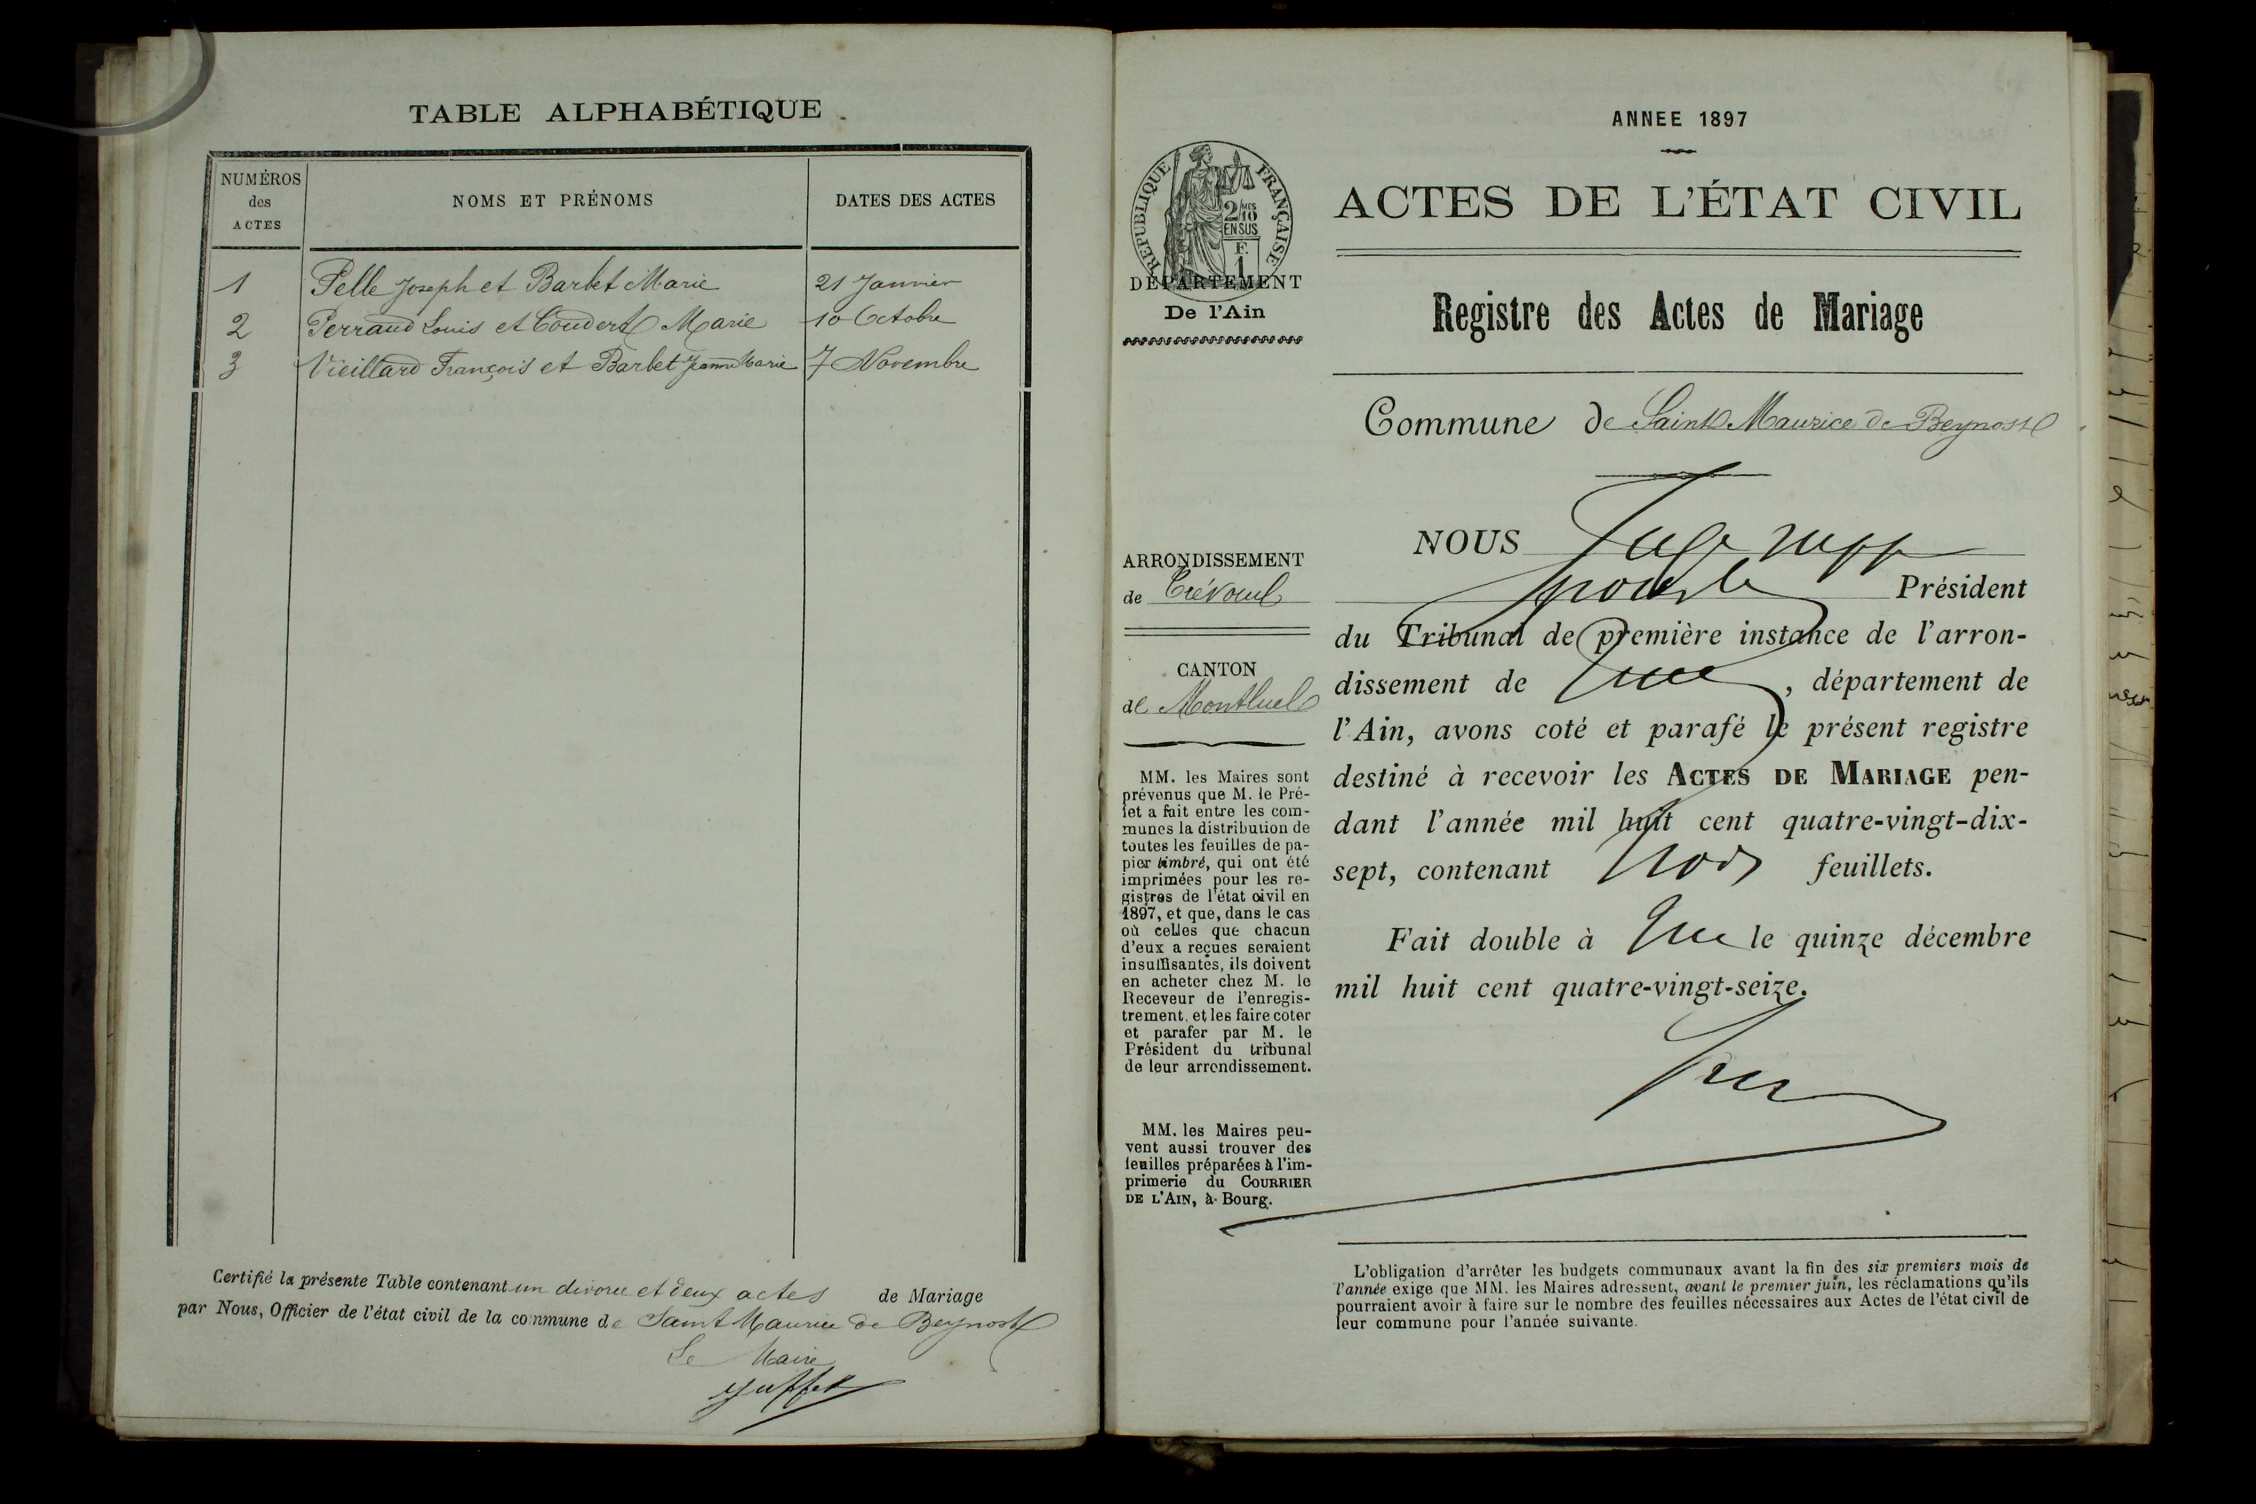 TABLE ALPHABÉTIQUE
NUMÉROS
des
ACTES
NOMS ET PRÉNOMS
DATES DES ACTES
1 Pelle Joseph et Barbet Marie 21 Janvier
2 Perraud Louis et Coudert Marie 10 Octobre
3 Vieillard François et Barbet Jeanne Marie 7 Novembre
Certifié la présente Table contenant un divorce et deux actes de Mariage
par Nous, Officier de l'état civil de la commune de Saint Maurice de Beynost
Le Maire
ANNEE 1897
RÉPUBLIQUE FRANÇAISE
2/10 MES
EN SUS
F.
1
DÉPARTEMENT
De l'Ain
ACTES DE L'ÉTAT CIVIL
Registre des Actes de Mariage
Commune de Saint Maurice de Beynost
ARRONDISSEMENT
de Trévoux
CANTON
de Montluel
MM. les Maires sont
prévenus que M. le Pré-
fet a fait entre les com-
munes la distribution de
toutes les feuilles de pa-
pier timbré, qui ont été
imprimées pour les re-
gistres de l'état civil en
1897, et que, dans le cas
où celles que chacun
d'eux a reçues seraient
insuffisantes, ils doivent
en acheter chez M. le
Receveur de l'enregis-
trement, et les faire coter
et parafer par M. le
Président du tribunal
de leur arrondissement.
MM. les Maires peu-
vent aussi trouver des
feuilles préparées à l'im-
primerie du COURRIER
DE L'AIN, à Bourg.
NOUS Juge supp
pour le Président
du Tribunal de première instance de l'arron-
dissement de , département de
l'Ain, avons coté et parafé le présent registre
destiné à recevoir les ACTES DE MARIAGE pen-
dant l'année mil huit cent quatre-vingt-dix-
sept, contenant trois feuillets.
Fait double à le quinze décembre
mil huit cent quatre-vingt-seize.
L'obligation d'arrêter les budgets communaux avant la fin des six premiers mois de
l'année exige que MM. les Maires adressent, avant le premier juin, les réclamations qu'ils
pourraient avoir à faire sur le nombre des feuilles nécessaires aux Actes de l'état civil de
leur commune pour l'année suivante.